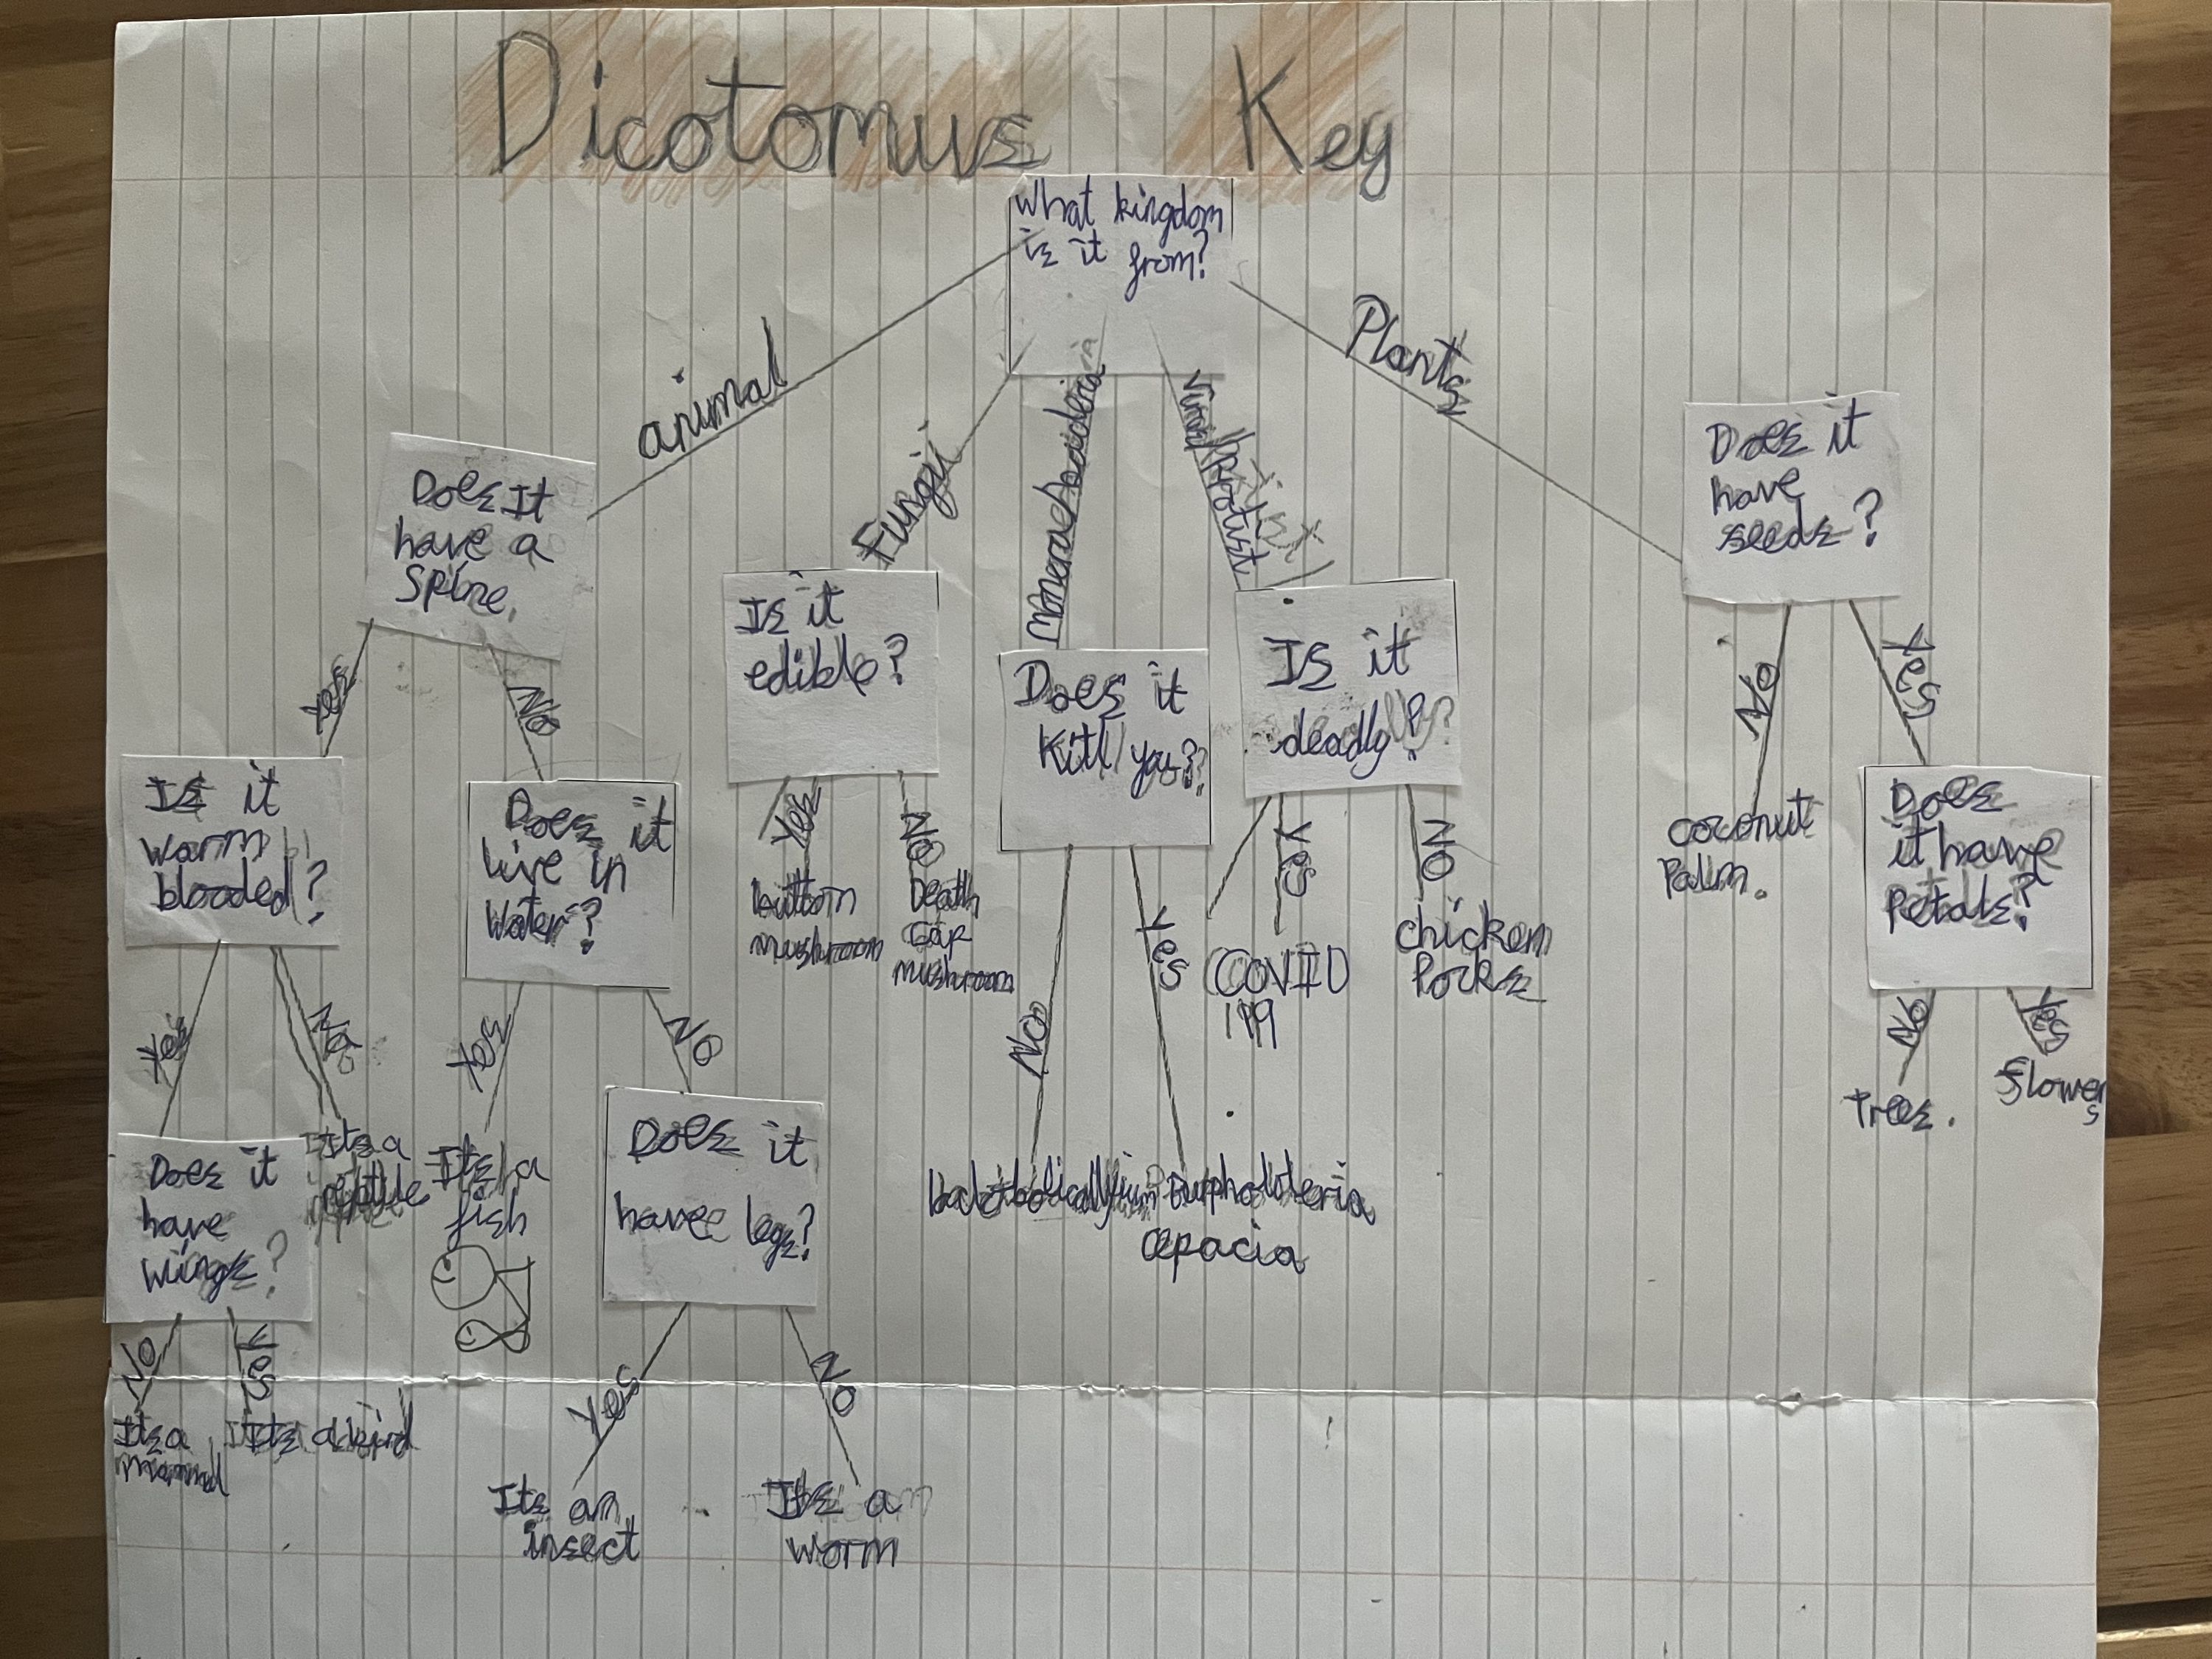 Dicotomus Key
What kingdom
is it from?
animal
Fungi
Plants
Does It
have a
Spine.
Is it
edible?
Does it
Kill you??
Is it
deadly?
Does it
have
seeds?
Yes
No
No
Yes
Is it
warm
blooded?
Does it
live in
Water?
Yes
button
mushroom
No
Death
cap
mushroom
No
Yes
Yes
COVID
19
No
chicken
Pocks
coconut
Palm.
Does
it have
Petals?
Yes
No
Yes
No
No
Trees.
Yes
flowers
Does it
have
wings?
Its a
reptile
Its a
fish
Does it
have legs?
cepacia
No
Yes
Its a
mammal
Its a bird
Yes
No
Its an
insect
Its a
worm